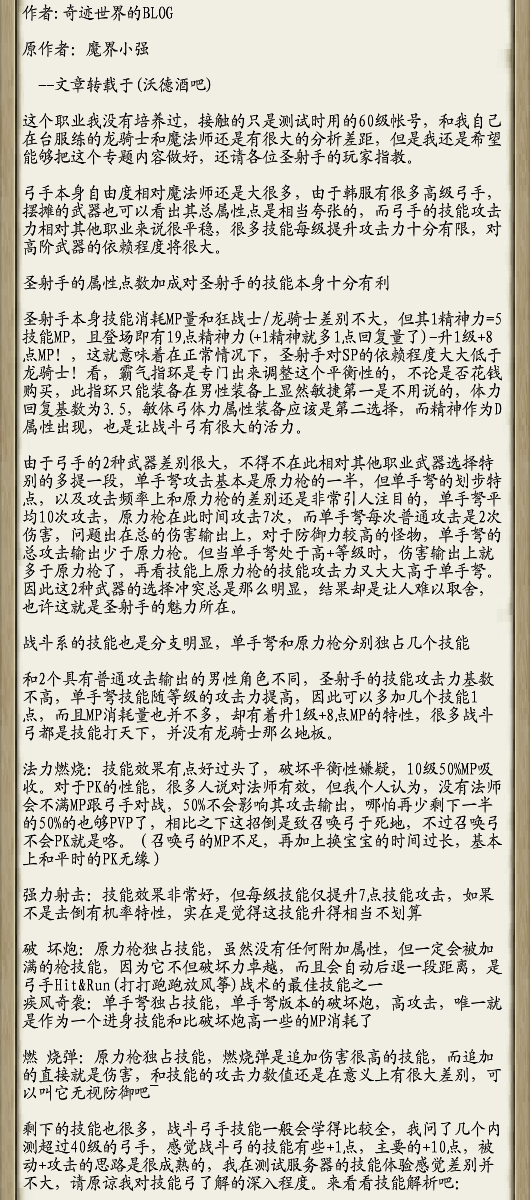 作者:奇迹世界的BLOG
原作者: 魔界小强
——文章转载于(沃德酒吧)
这个职业我没有培养过，接触的只是测试时用的60级帐号，和我自己
在台服练的龙骑士和魔法师还是有很大的分析差距，但是我还是希望
能够把这个专题内容做好，还请各位圣射手的玩家指教。
弓手本身自由度相对魔法师还是大很多，由于韩服有很多高级弓手，
摆摊的武器也可以看出其总属性点是相当夸张的，而弓手的技能攻击
力相对其他职业来说很平稳，很多技能每级提升攻击力十分有限，对
高阶武器的依赖程度将很大。
圣射手的属性点数加成对圣射手的技能本身十分有利
圣射手本身技能消耗MP量和狂战士/龙骑士差别不大，但其1精神力=5
技能MP，且登场即有19点精神力(+1精神就多1点回复量了)—升1级+8
点MP！，这就意味着在正常情况下，圣射手对SP的依赖程度大大低于
龙骑士！看，霸气指环是专门出来调整这个平衡性的，不论是否花钱
购买，此指环只能装备在男性装备上显然敏捷第一是不用说的，体力
回复基数为3.5，敏体弓体力属性装备应该是第二选择，而精神作为D
属性出现，也是让战斗弓有很大的活力。
由于弓手的2种武器差别很大，不得不在此相对其他职业武器选择特
别的多提一段，单手弩攻击基本是原力枪的一半，但单手弩的划步特
点，以及攻击频率上和原力枪的差别还是非常引人注目的，单手弩平
均10次攻击，原力枪在此时间攻击7次，而单手弩每次普通攻击是2次
伤害，问题出在总的伤害输出上，对于防御力较高的怪物，单手弩的
总攻击输出少于原力枪。但当单手弩处于高+等级时，伤害输出上就
多于原力枪了，再看技能上原力枪的技能攻击力又大大高于单手弩。
因此这2种武器的选择冲突总是那么明显，结果却是让人难以取舍，
也许这就是圣射手的魅力所在。
战斗系的技能也是分支明显，单手弩和原力枪分别独占几个技能
和2个具有普通攻击输出的男性角色不同，圣射手的技能攻击力基数
不高，单手弩技能随等级的攻击力提高，因此可以多加几个技能1
点，而且MP消耗量也并不多，却有着升1级+8点MP的特性，很多战斗
弓都是技能打天下，并没有龙骑士那么地板。
法力燃烧：技能效果有点好过头了，破坏平衡性嫌疑，10级50%MP吸
收。对于PK的性能，很多人说对法师有效，但我个人认为，没有法师
会不满MP跟弓手对战，50%不会影响其攻击输出，哪怕再少剩下一半
的50%的也够PVP了，相比之下这招倒是致召唤弓于死地，不过召唤弓
不会PK就是咯。（召唤弓的MP不足，再加上换宝宝的时间过长，基本
上和平时的PK无缘）
强力射击：技能效果非常好，但每级技能仅提升7点技能攻击，如果
不是击倒有机率特性，实在是觉得这技能升得相当不划算
破 坏炮：原力枪独占技能，虽然没有任何附加属性，但一定会被加
满的枪技能，因为它不但破坏力卓越，而且会自动后退一段距离，是
弓手Hit&Run(打打跑跑放风筝)战术的最佳技能之一
疾风奇袭：单手弩独占技能，单手弩版本的破坏炮，高攻击，唯一就
是作为一个进身技能和比破坏炮高一些的MP消耗了
燃 烧弹：原力枪独占技能，燃烧弹是追加伤害很高的技能，而追加
的直接就是伤害，和技能的攻击力数值还是在意义上有很大差别，可
以叫它无视防御吧~
剩下的技能也很多，战斗弓手技能一般会学得比较全，我问了几个内
测超过40级的弓手，感觉战斗弓的技能有些+1点，主要的+10点，被
动+攻击的思路是很成熟的，我在测试服务器的技能体验感觉差别并
不大，请原谅我对技能弓了解的深入程度。来看看技能解析吧：